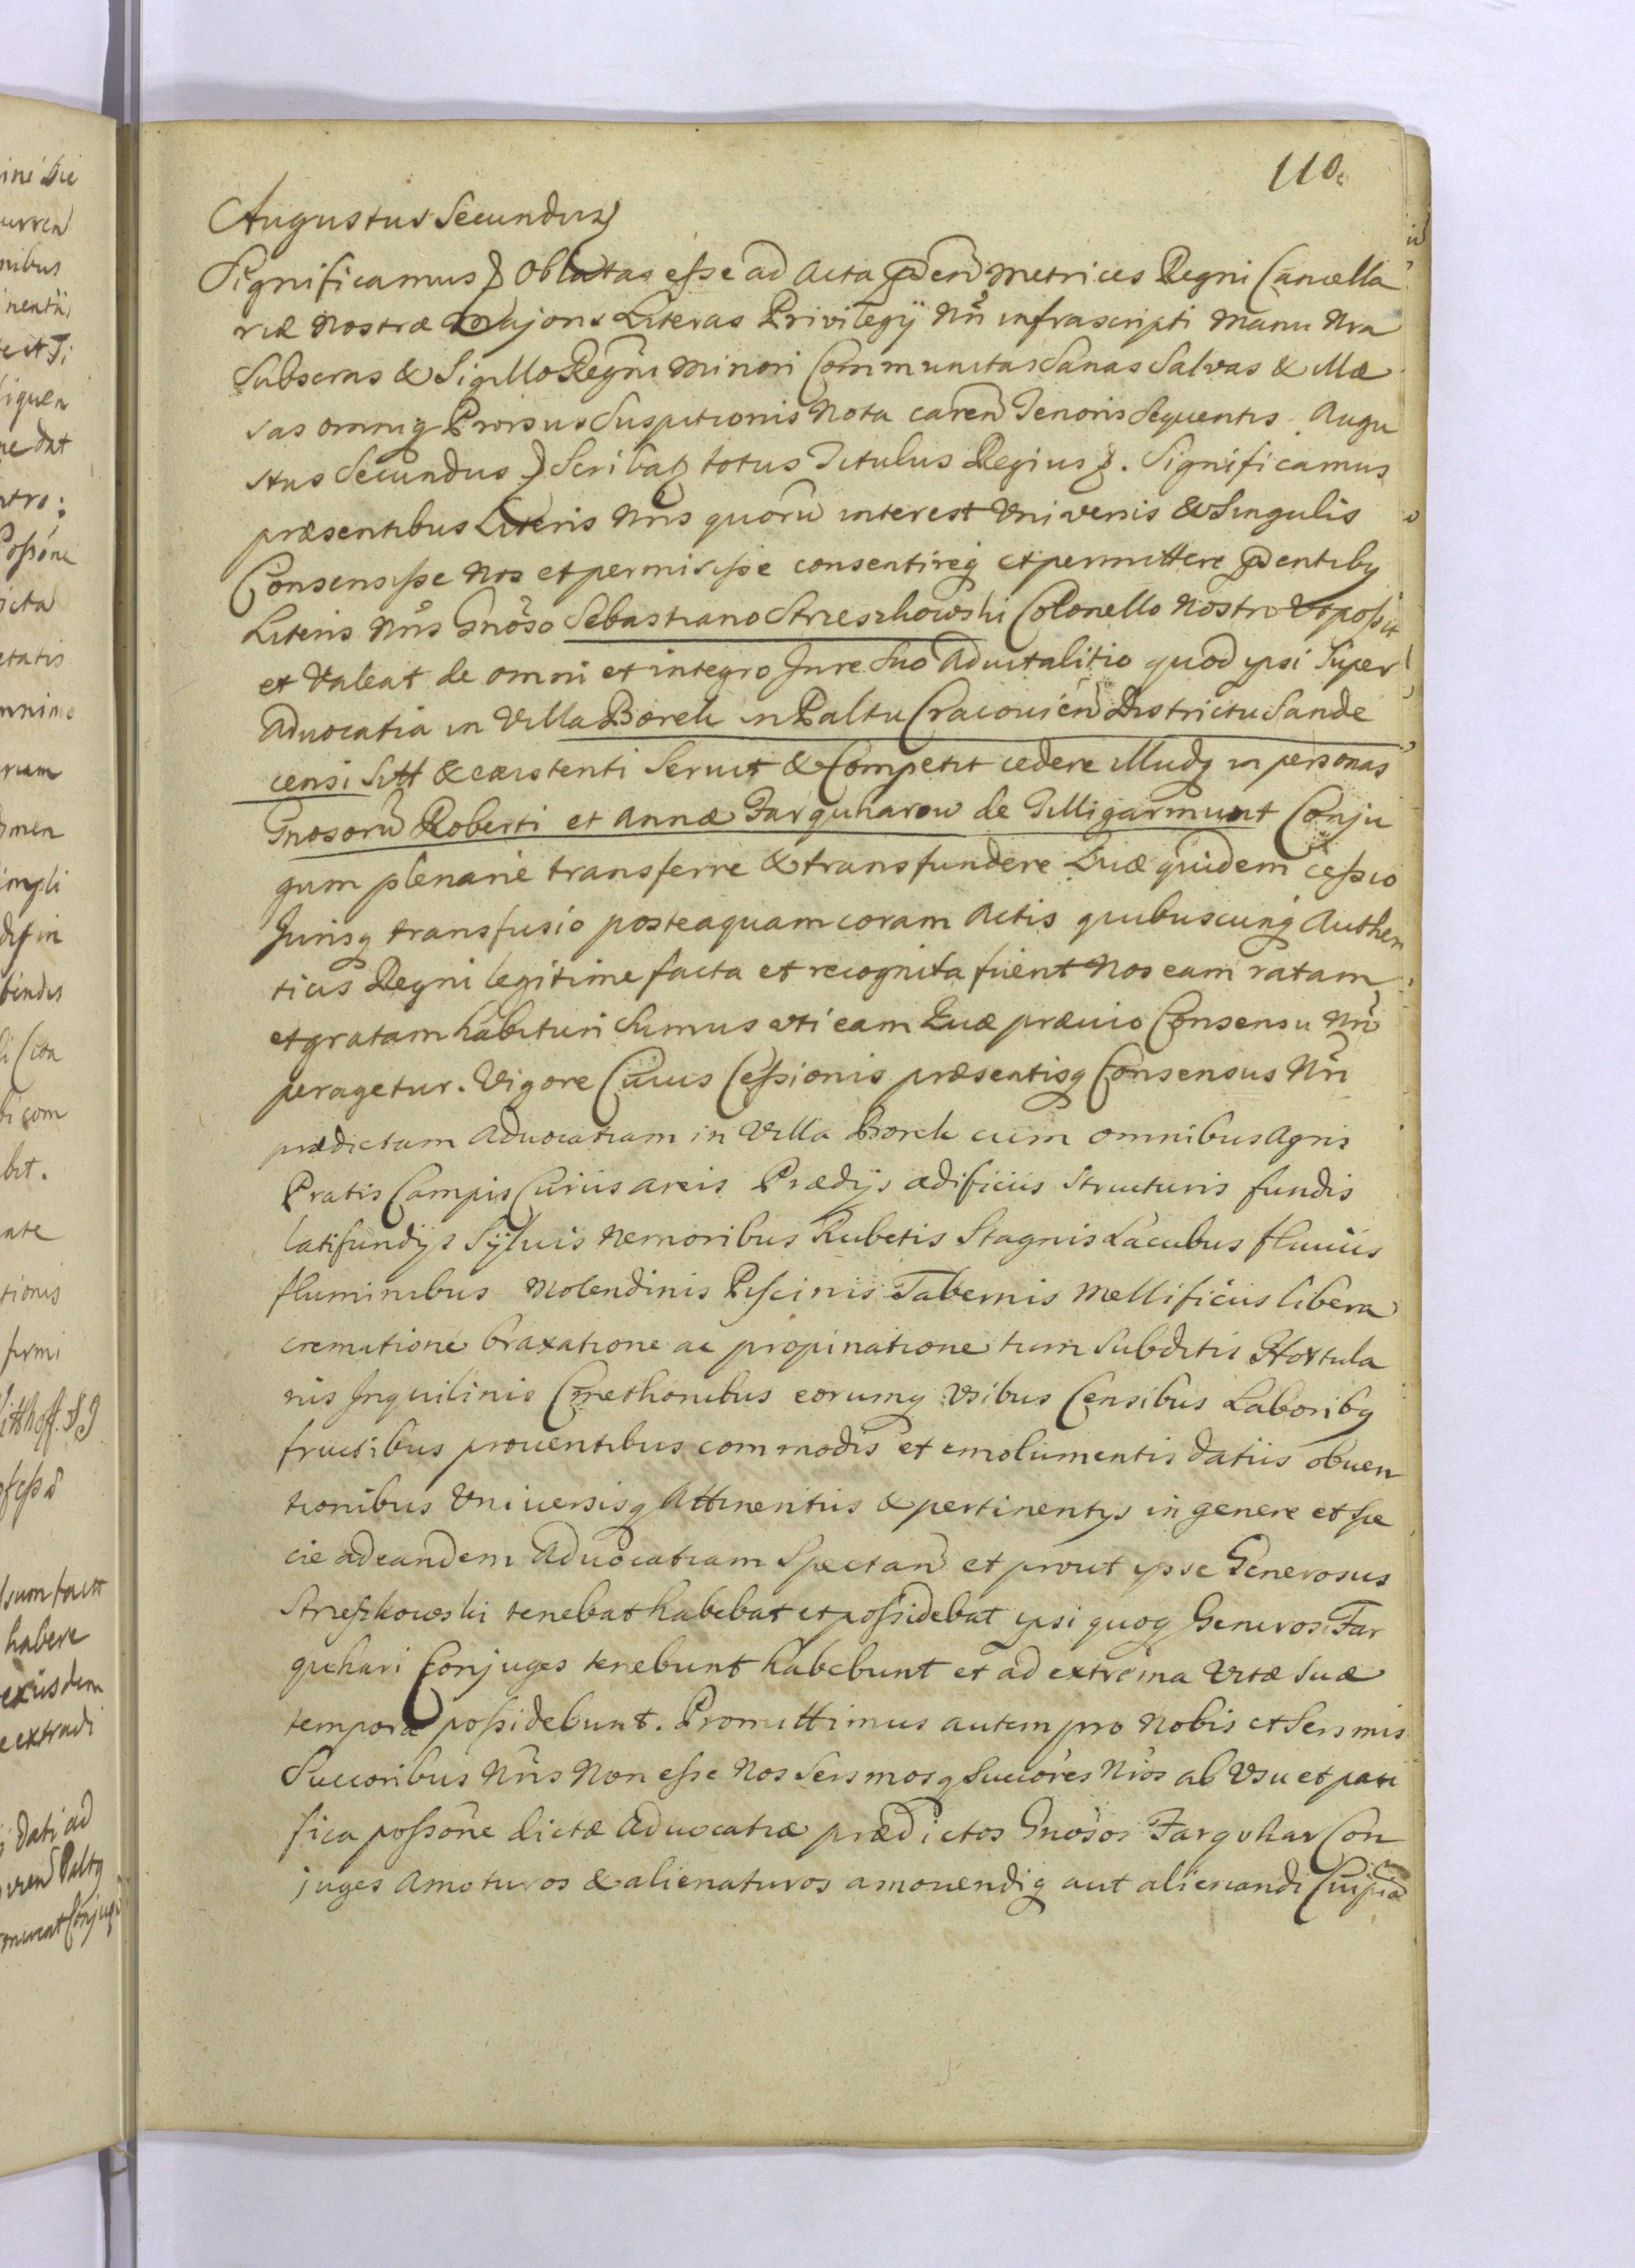 110.
Augustus Secundus
Significamus Oblatas esse ad Acta pden Metrices Regni Cancella
riæ Nostræ Majoris Literas Privilegÿ Nri infrascripti Manu Nra
Subscras & Sigillo Regni Minori Communitas Sanas Salvas & Illæ
sas omniq Prorsus Suspitionis Nota caren Tenoris Sequentis. Augu
stus Secundus Scribat totus Titulus Regius. Significamus
præsentibus Literis Nris quorū interest Universis & Singulis
Consensisse Nos et permisisse consentireq et permittere pdentibq
Literis Nris Gnoso Sebastiano Strzeszkowski Colonello Nostro Vt possit
et Valeat de omni et integro Jure Suo Aduitalitio quod ipsi Super
Aduocatia in Villa Borek in Paltu Cracouien Districtu Sande
censi Sitt & existenti Seruit & Competit cedere Illudq in personas
Gnosorū Roberti et Annæ Farquharow de Tilligarmunt Conju
gum plenarie transferre & transfundere Quæ quidem cessio
Jurisq transfusio posteaquam coram Actis quibuscunq Authen
ticis Regni legitime facta et recognita fuent Nos eam ratam
et gratam habituri Sumus vti eam Quæ præuio Consensu Nro
peragetur. Vigore Cuius Cessionis præsentisq Consensus Nri
prædictam Aduocatiam in Villa Borek cum omnibus Agris
Pratis Campis Curiis areis Prædÿs ædificiis Structuris fundis
latifundÿs Sÿluis Nemoribus Rubetis Stagnis Lacubus fluuiis
fluminibus Molendinis Piscinis Tabernis Mellificiis libera
crematione braxatione ac propinatione tum Subditis Hortula
nis Inquilinis Cmethonibus eorumq Vsibus Censibus Laboribq
fructibus prouentibus commodis et emolumentis datiis obuen
tionibus Vniuersisq Attinentiis & pertinentÿs in genere et spe
cie ad eandem Aduocatiam Spectan et prout ipse Generosus
Strzeszkowski tenebat habebat et possidebat ipsi quoq Generosi Far
quhari Conjuges tenebunt habebunt et ad extrema Vitæ suæ
tempora possidebunt. Promittimus autem pro Nobis et Sersmis
Succoribus Nris Non esse Nos Sersmosq Succores Nros ab Vsu et paci
fica possone dictæ Aduocatiæ prædictos Gnosos Farquhar Con
juges Amoturos & alienaturos amouendiq aut alienandi Cuipia